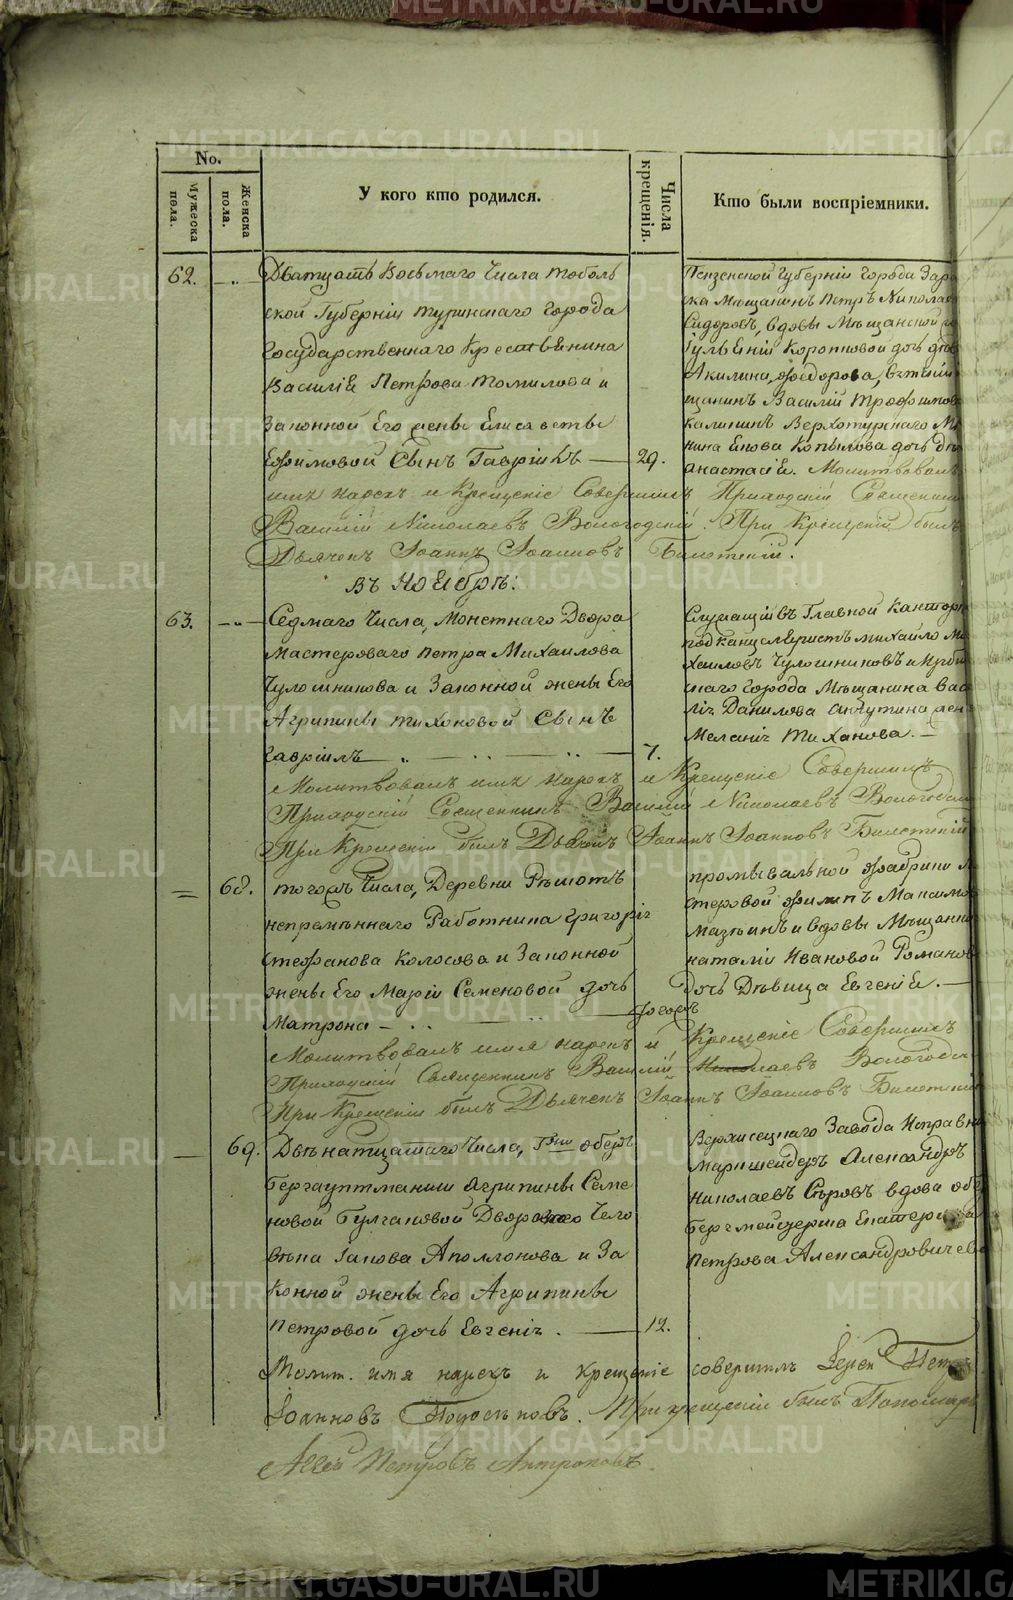 METRIKI.GASO-URAL.RU
No.
Мужеска пола.
Женска пола.
У кого кто родился.
Числа крещенія.
Кто были воспріемники.
62.
Дватцать восьмаго Числа тоболь
ской Губерніи туринскаго города
Государственнаго Крестьянина
Василіе Петрова томилова и
Законной его жены Елисаветы
Ефимовой Сынъ Гавріилъ
29.
Пензенской Губерніи города
ска Мещанинъ Петръ Николаев
Сидоровъ, вдовы Мещанской
Коротковой дочь
Акилина Федорова,
щанинъ Василій Трофимов
калининъ Верхотурскаго
нина Копылова дочь
анастасіе. Молитвовалъ
имя нарекъ и Крещеніе Совершилъ Приходскій Священникъ
Василій Николаевъ Вологодскій. При Крещеніи былъ
Дьячекъ Іоаннъ Іоанновъ Билетскій.
Въ Ноябрѣ:
63.
Седмаго Числа, Монетнаго Двора
Мастероваго Петра Михаилова
Чулошникова и Законной жены Его
Агрипины Тихоновой Сынъ
Гавріилъ
7.
Служащій въ Главной Канторе
подканцеляристъ михайло Ми
хаиловъ Чулошниковъ и
скаго города Мещанина Васи
лія Данилова жен
Меланія Тиханова.
Молитвовалъ имя нарекъ и Крещеніе Совершилъ
Приходскій Священникъ Василій Николаевъ Вологодскій
При Крещеніи былъ Дьячекъ Іоаннъ Іоанновъ Билетскій
68.
тогожъ Числа, Деревни Решотъ
непременнаго Работника григорія
стефанова Колосова и Законной
жены Его Маріи Семеновой дочь
Матрона
промывальной фабрики Ма
стеровой Филипъ Максимов
Мазеинъ и вдовы Мещанки
наталіи Ивановой Романов
Дочь Девица Евгеніе.
Молитвовалъ имя нарекъ и Крещеніе Совершилъ
Приходскій Священникъ Василій Николаевъ Вологодскій
При Крещеніи былъ Дьячекъ Іоаннъ Іоанновъ Билетскій
69.
Двенатцатаго Числа, Гжи обера
бергауптманши Агрипины Семе
новой Булгаковой Двороваго Чело
века Іакова Аполлонова и За
конной жены Его Агрипины
Петровой дочь Евгеніе.
12.
Верхисецкаго Завода Исправни
Маркшейдеръ Александръ
николаевъ Серовъ вдова обер
бергмейстерша Екатерина
Петрова Александровичева
Молит. имя нарекъ и крещеніе совершилъ Іерей Петръ
Іоанновъ При крещеніи былъ Пономарь
Петровъ Антроповъ.